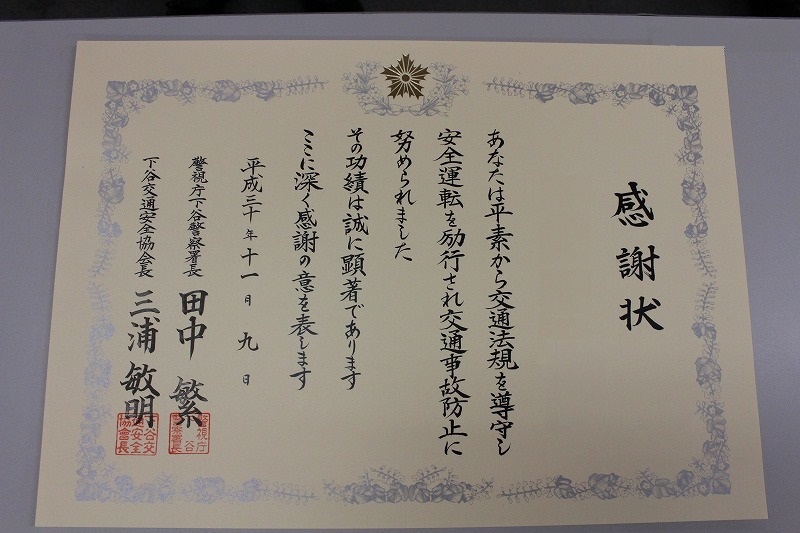 感謝状
あなたは平素から交通法規を遵守し
安全運転を励行され交通事故防止に
努められました
その功績は誠に顕著であります
ここに深く感謝の意を表します
平成三十年十一月九日
警視庁下谷警察署長 田中 繁
下谷交通安全協会長 三浦敏明